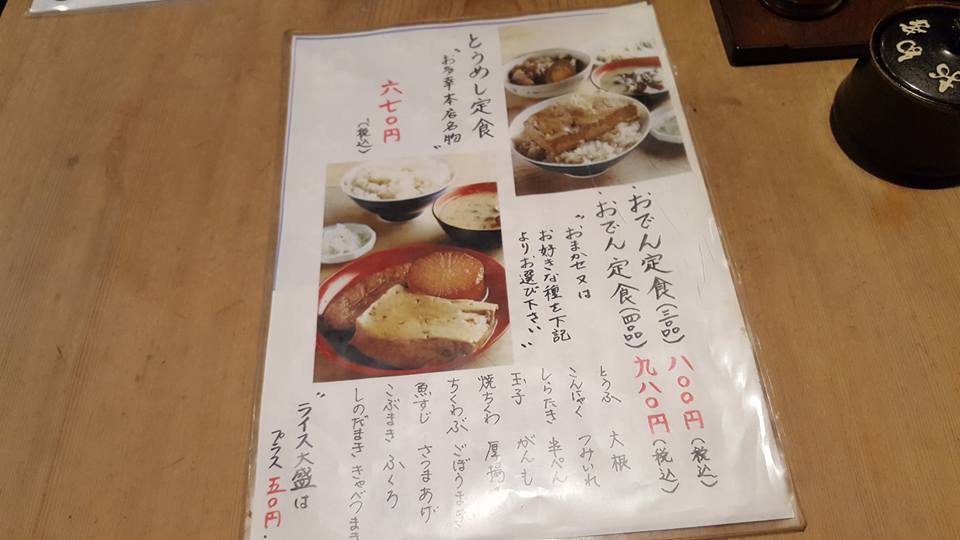 とうめし定食
"お多幸本店名物"
六七〇円
(税込)
・おでん定食(三品)八〇〇円(税込)
・おでん定食(四品)九八〇円(税込)
"おまかせ又は
お好きな種を下記
よりお選び下さい"
とうふ 大根
こんにゃく つみいれ
しらたき 半ぺん
玉子 がんも
焼ちくわ 厚揚
ちくわぶ ごぼうまき
魚すじ さつまあげ
こぶまき ふくろ
しのだまき きゃべつまき
"ライス大盛は
プラス 五〇円